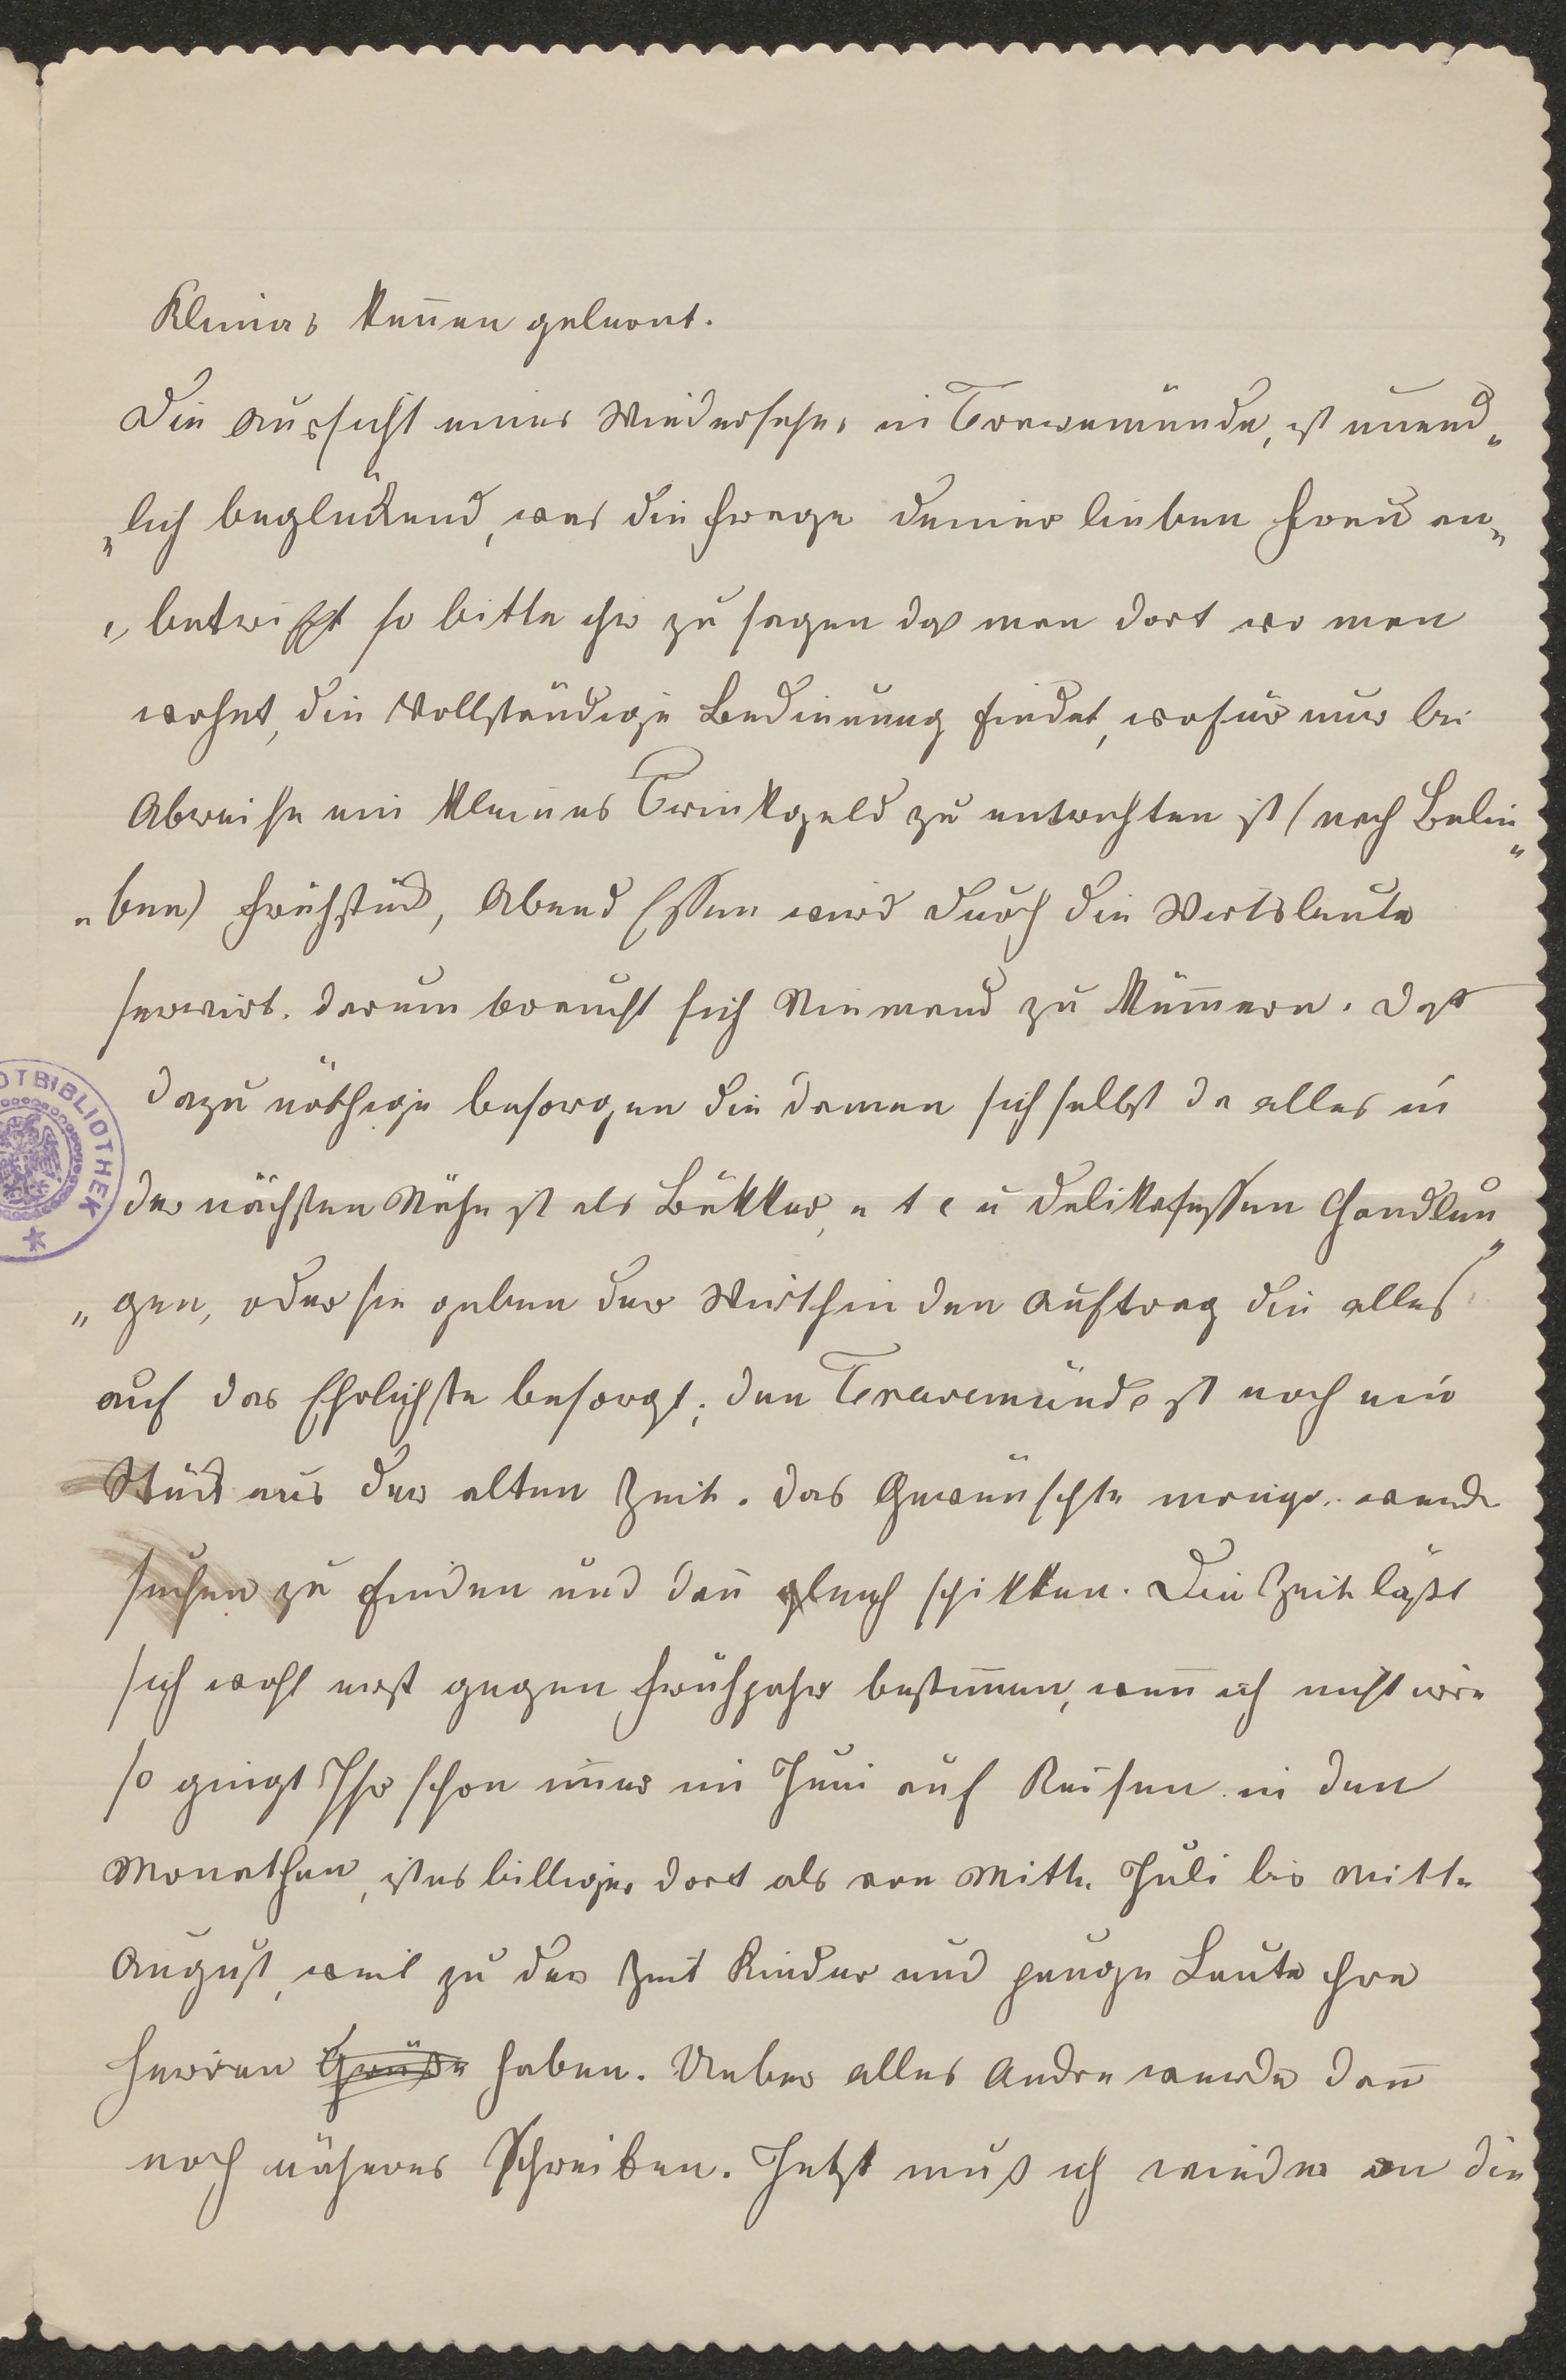 Klimas kennen gelernt.
Die Aussicht eines Wiedersehns in Travemünde, ist unend„
„lich beglückend, was die Frage deiner lieben Frau an„
„betrifft so bitte ihr zu sagen daß man dort wo man
wohnt, die Vollständige Bedienung findet, wofür nur bei
Abreise ein kleines Trinkgeld zu entrichten ist (nach Belie„
„ben) Frühstück, Abend Essen wird durch die Wirtsleute
servirt. darum braucht sich Niemand zu kümern. Daß
dazu nöthige besorgen die damen sich selbst da alles in
der nächsten Nähe ist als Bäkker, e t c u delikatessen Handlun„
„gen, oder sie geben der Wirthin den Auftrag die alles
auf das Ehrlichste besorgt; den Travemünde ist noch ein
Stück aus der alten Zeit. das Gewünschte werde
suchen zu finden und dan gleich schikken. Die Zeit läßt
sich wohl erst gegen Frühjahr bestimen, wen ich nicht irre
so gingt Ihr schon imer im Juni auf Reisen. in den
Monathen, ist es billiger dort als von Mitte Juli bis Mitte
August, weil zu der Zeit Kinder und junge Leute ihre
Ferien Grüße haben. Ueber alles Andre werde dan
noch näheres Schreiben. Jetzt muß ich wieder an die
OTBIBLIOTHEK